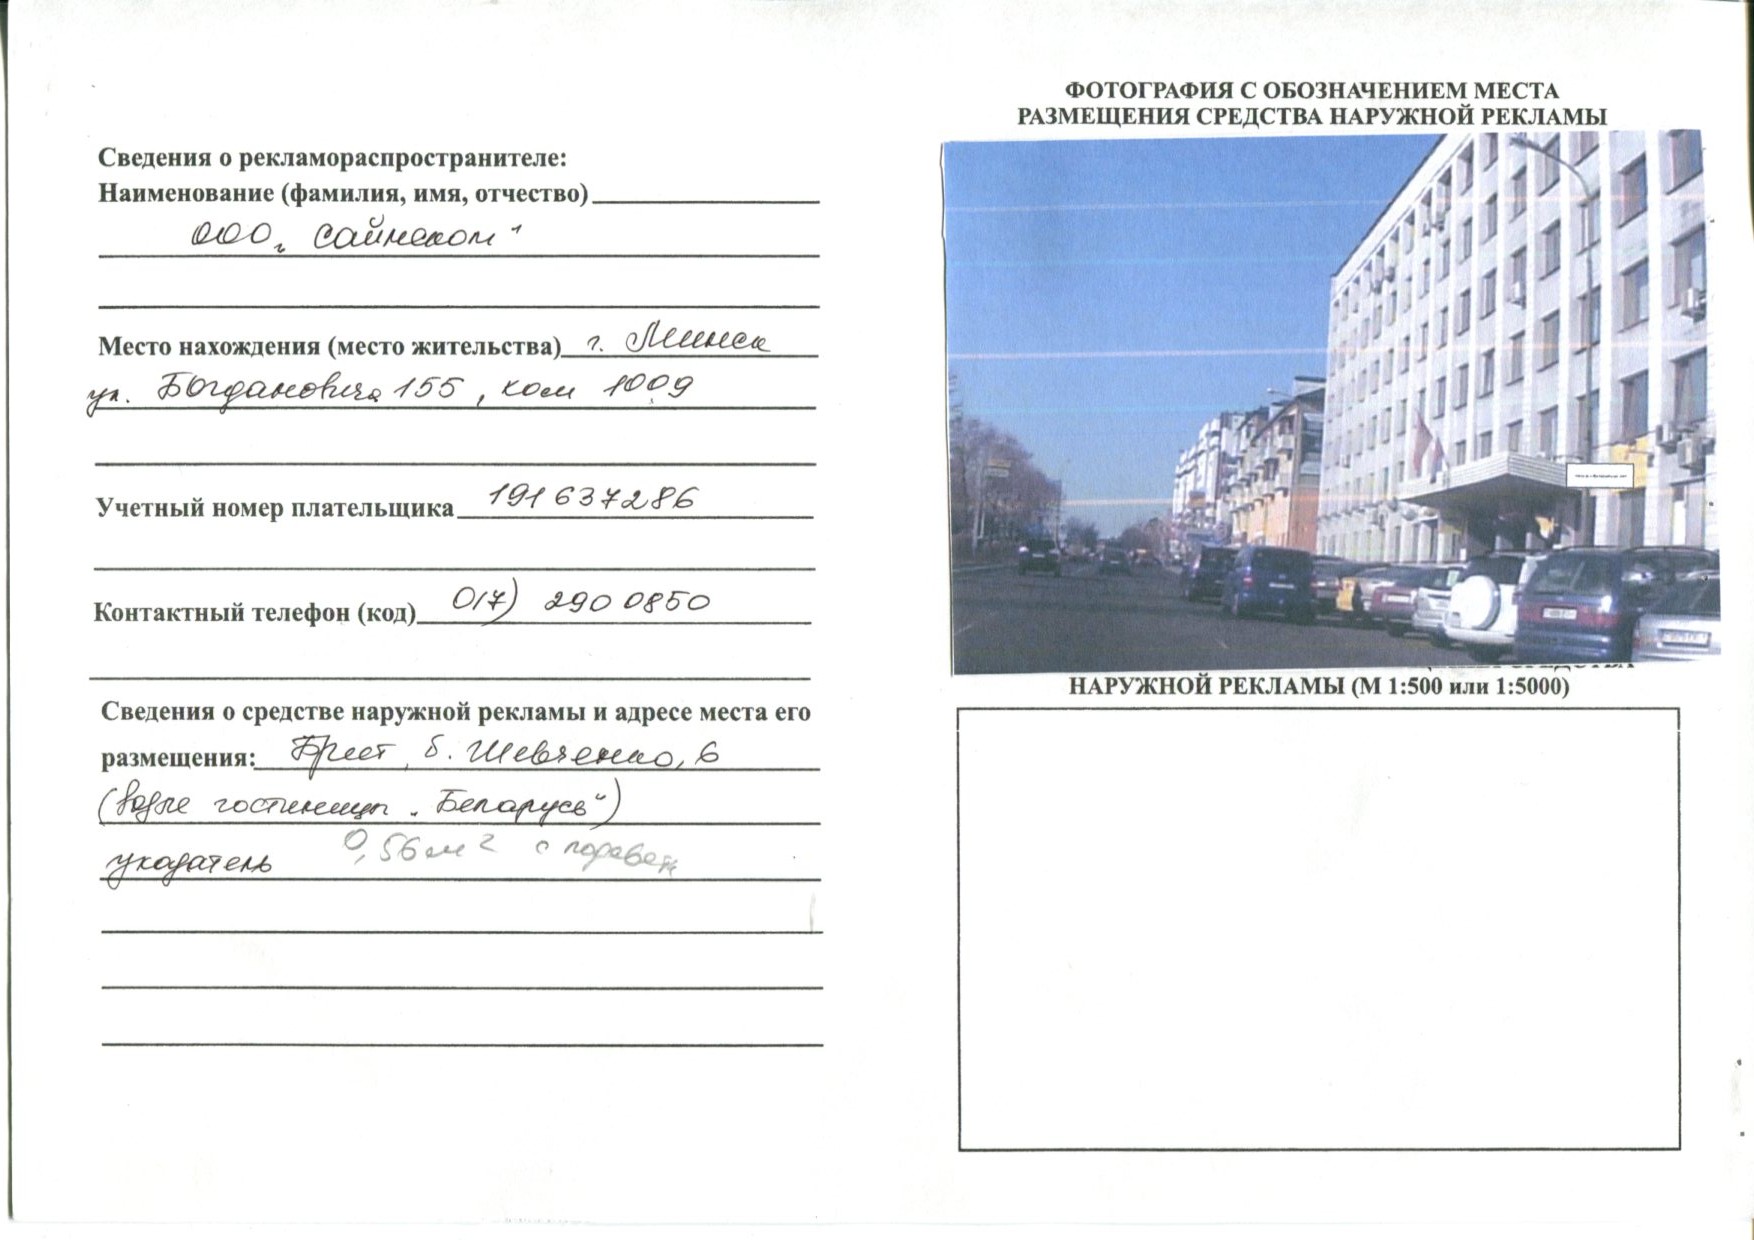 Сведения о рекламораспространителе:
Наименование (фамилия, имя, отчество)
ООО „Сайнеком"
Место нахождения (место жительства) г. Минск
ул. Богдановича 155, ком 1009
Учетный номер плательщика 191637286
Контактный телефон (код) 017) 290 0850
Сведения о средстве наружной рекламы и адресе места его
размещения: Брест, б. Шевченко, 6
(возле гостиницы „Беларусь")
указатель 0,56 м2 с
ФОТОГРАФИЯ С ОБОЗНАЧЕНИЕМ МЕСТА
РАЗМЕЩЕНИЯ СРЕДСТВА НАРУЖНОЙ РЕКЛАМЫ
НАРУЖНОЙ РЕКЛАМЫ (М 1:500 или 1:5000)